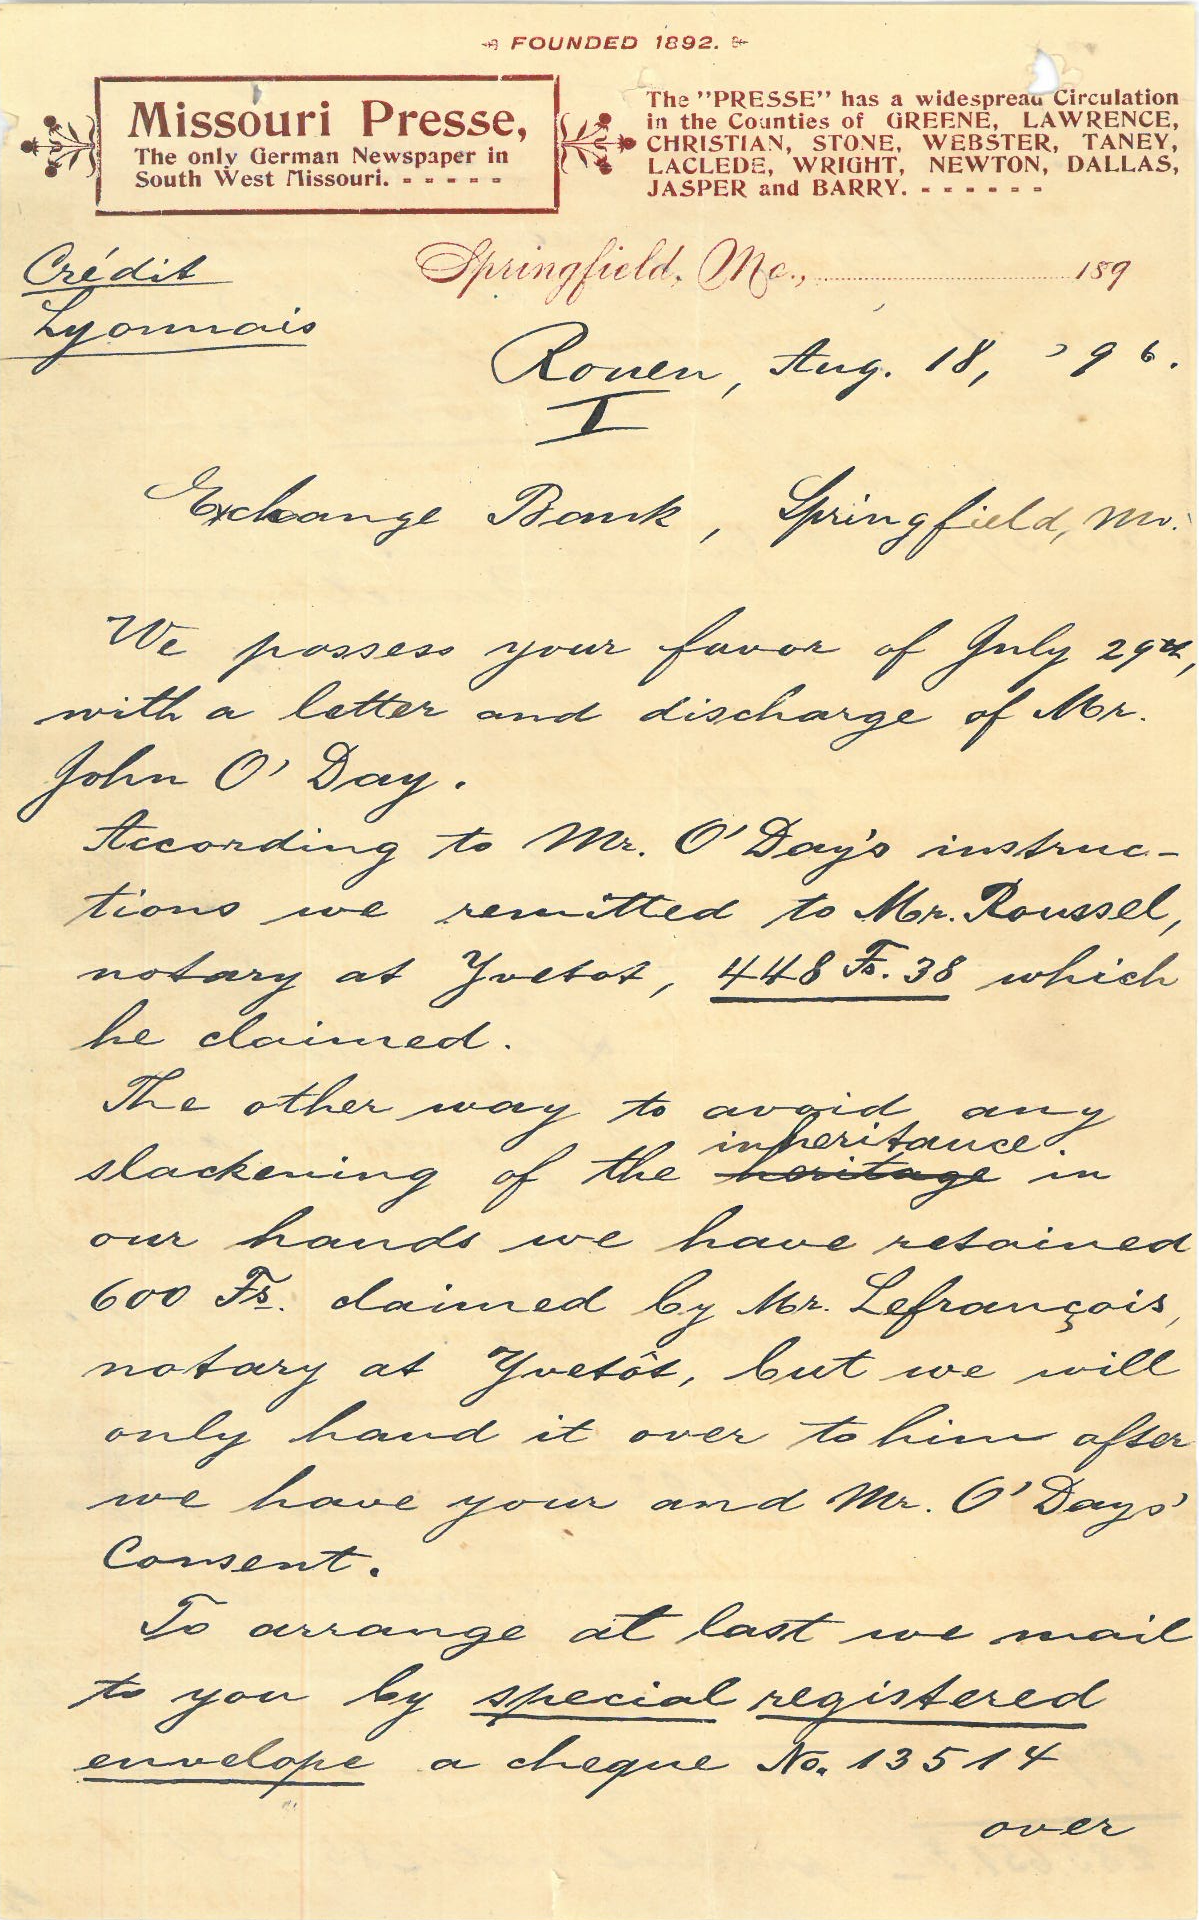 FOUNDED 1892.
Missouri Presse,
The only German Newspaper in
South West Missouri. - - - - -
The "PRESSE" has a widespread Circulation
in the Counties of GREENE, LAWRENCE,
CHRISTIAN, STONE, WEBSTER, TANEY,
LACLEDE, WRIGHT, NEWTON, DALLAS,
JASPER and BARRY. - - - - - -
Crédit
Lyonnais
Springfield, Mo., 189
Rouen, Aug. 18, '96.
I
Exchange Bank, Springfield, Mo.
We possess your favor of July 29th,
with a letter and discharge of Mr.
John O'Day.
According to Mr. O'Day's instruc-
tions we remitted to Mr. Roussel,
notary at Yvetot, 448 Fs. 38 which
he claimed.
The other way to avoid any
inheritance.
slackening of the heritage in
our hands we have retained
600 Fs. claimed by Mr. Lefrançois,
notary at Yvetôt, but we will
only hand it over to him after
we have your and Mr. O'Days'
Consent.
To arrange at last we mail
to you by special registered
envelope a cheque No. 13514
over